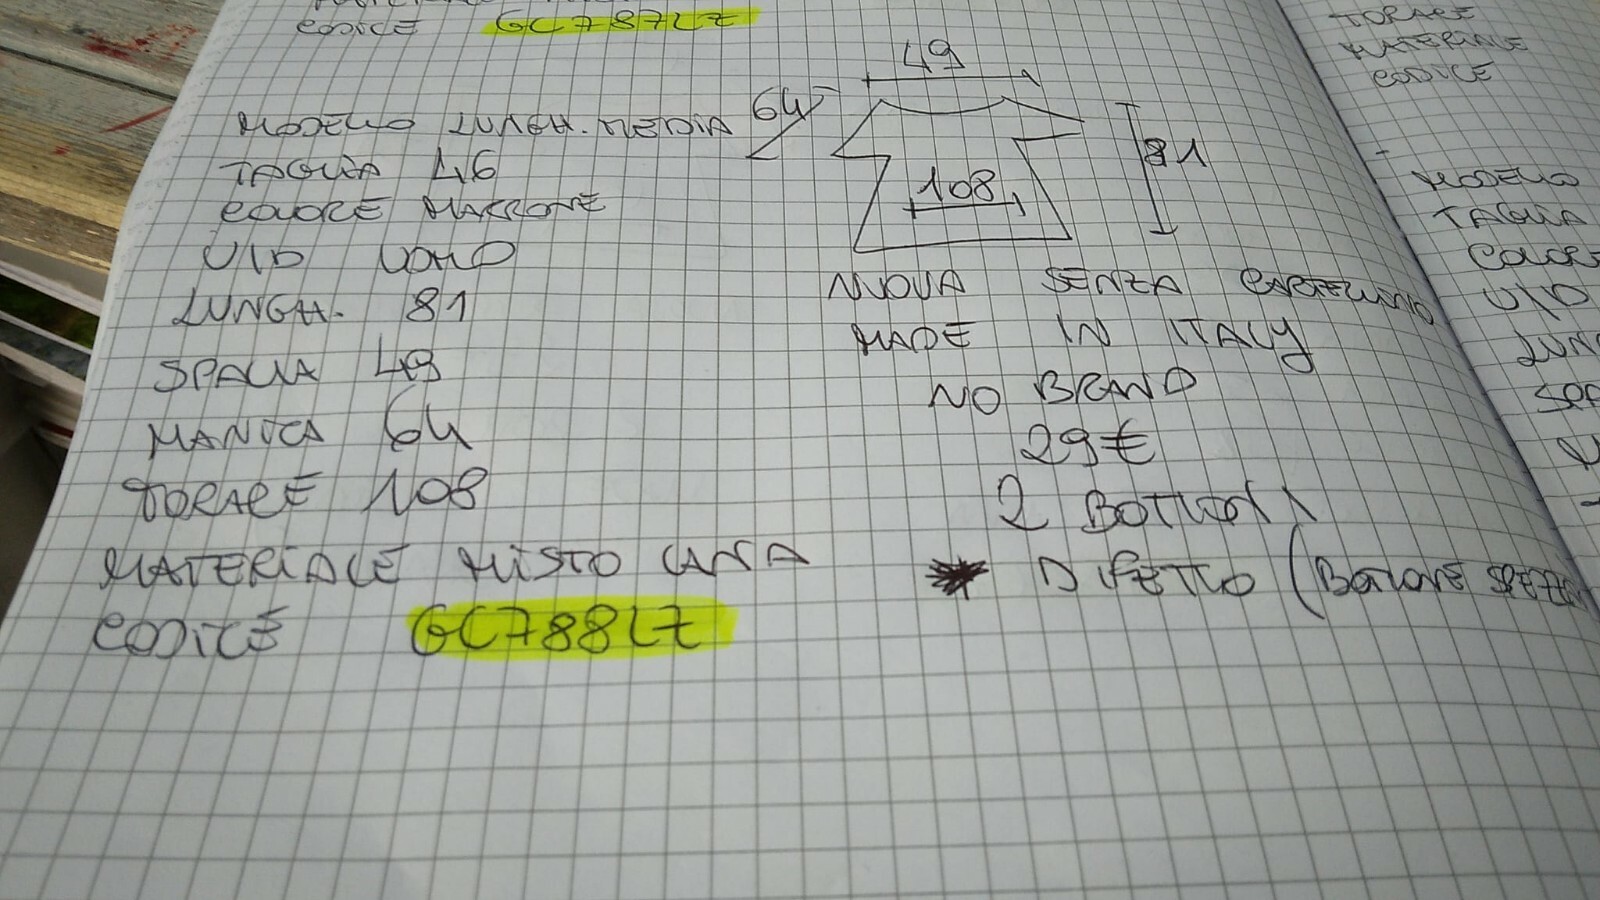 CODICE GC787LZ
MODELLO LUNGH. MEDIA
TAGLIA 46
COLORE MARRONE
U/D UOMO
LUNGH. 81
SPALLA 49
MANICA 64
TORACE 108
MATERIALE MISTO LANA
CODICE GC788LZ
49
64
108
81
NUOVA SENZA CARTELLINO
MADE IN ITALY
NO BRAND
29€
2 BOTTONI
DIFETTO (BOTTONE
TORACE
MATERIALE
CODICE
-
MODELLO
TAGLIA
COLORE
U/D
LUN
SPA